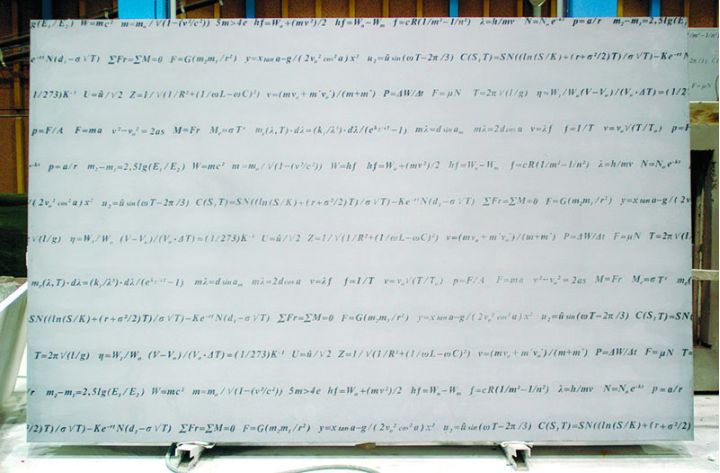 g(E₁/E₂) W=mc² m=mₒ/√(1-(v²/c²)) 5m>4e hf=Wᵤ+(mv²)/2 hf=Wₙ-Wₘ f=cR(1/m²-1/n²) λ=h/mv N=Nₒe⁻ᵏᵗ p=a/r m₂-m₁=2,5lg(E₁
e⁻ʳᵗN(d₁-σ√T) ∑Fr=∑M=0 F=G(m₁m₂/r²) y=x tan a-g/(2vₒ² cos² a)x² u₂=û sin(ωT-2π/3) C(S,T)=SN((ln(S/K)+(r+σ²/2)T)/σ√T)-Ke⁻ʳᵗN
1/273)K⁻¹ U=û/√2 Z=1/√(1/R²+(1/ωL-ωC)²) v=(mvₒ+m´vₒ´)/(m+m´) P=ΔW/Δt F=μN T=2π√(l/g) η=W₁/Wₒ (V-Vₒ)/(Vₒ·ΔT)=(1/2
p=F/A F=ma v²-vₒ²=2as M=Fr Mₛ=σT⁴ mₛ(λ,T)·dλ=(k₁/λ⁵)·dλ/(e -1) mλ=d sin aₘ mλ=2d cos a v=λf f=1/T v=vₒ√(T/Tₒ) p=F
e⁻ᵏᵗ p=a/r m₂-m₁=2,5lg(E₁/E₂) W=mc² m=mₒ/√(1-(v²/c²)) W=hf hf=Wᵤ+(mv²)/2 hf=Wₙ-Wₘ f=cR(1/m²-1/n²) λ=h/mv N=Nₒe⁻ᵏᵗ
/(2vₒ² cos² a)x² u₂=û sin(ωT-2π/3) C(S,T)=SN((ln(S/K)+(r+σ²/2)T)/σ√T)-Ke⁻ʳᵗN(d₁-σ√T) ∑Fr=∑M=0 F=G(m₁m₂/r²) y=x tan a-g/(2v
√(l/g) η=W₁/Wₒ (V-Vₒ)/(Vₒ·ΔT)=(1/273)K⁻¹ U=û/√2 Z=1/√(1/R²+(1/ωL-ωC)²) v=(mvₒ+m´vₒ´)/(m+m´) P=ΔW/Δt F=μN T=2π√(l
mₛ(λ,T)·dλ=(k₁/λ⁵)·dλ/(e -1) mλ=d sin aₘ mλ=2d cos a v=λf f=1/T v=vₒ√(T/Tₒ) p=F/A F=ma v²-vₒ²=2as M=Fr Mₛ=σT⁴ mₛ(
SN((ln(S/K)+(r+σ²/2)T)/σ√T)-Ke⁻ʳᵗN(d₁-σ√T) ∑Fr=∑M=0 F=G(m₁m₂/r²) y=x tan a-g/(2vₒ² cos² a)x² u₂=û sin(ωT-2π/3) C(S,T)=SN(
T=2π√(l/g) η=W₁/Wₒ (V-Vₒ)/(Vₒ·ΔT)=(1/273)K⁻¹ U=û/√2 Z=1/√(1/R²+(1/ωL-ωC)²) v=(mvₒ+m´vₒ´)/(m+m´) P=ΔW/Δt F=μN T=
/r m₂-m₁=2,5lg(E₁/E₂) W=mc² m=mₒ/√(1-(v²/c²)) 5m>4e hf=Wᵤ+(mv²)/2 hf=Wₙ-Wₘ f=cR(1/m²-1/n²) λ=h/mv N=Nₒe⁻ᵏᵗ p=a/r
/2)T)/σ√T)-Ke⁻ʳᵗN(d₁-σ√T) ∑Fr=∑M=0 F=G(m₁m₂/r²) y=x tan a-g/(2vₒ² cos² a)x² u₂=û sin(ωT-2π/3) C(S,T)=SN((ln(S/K)+(r+σ²/2)